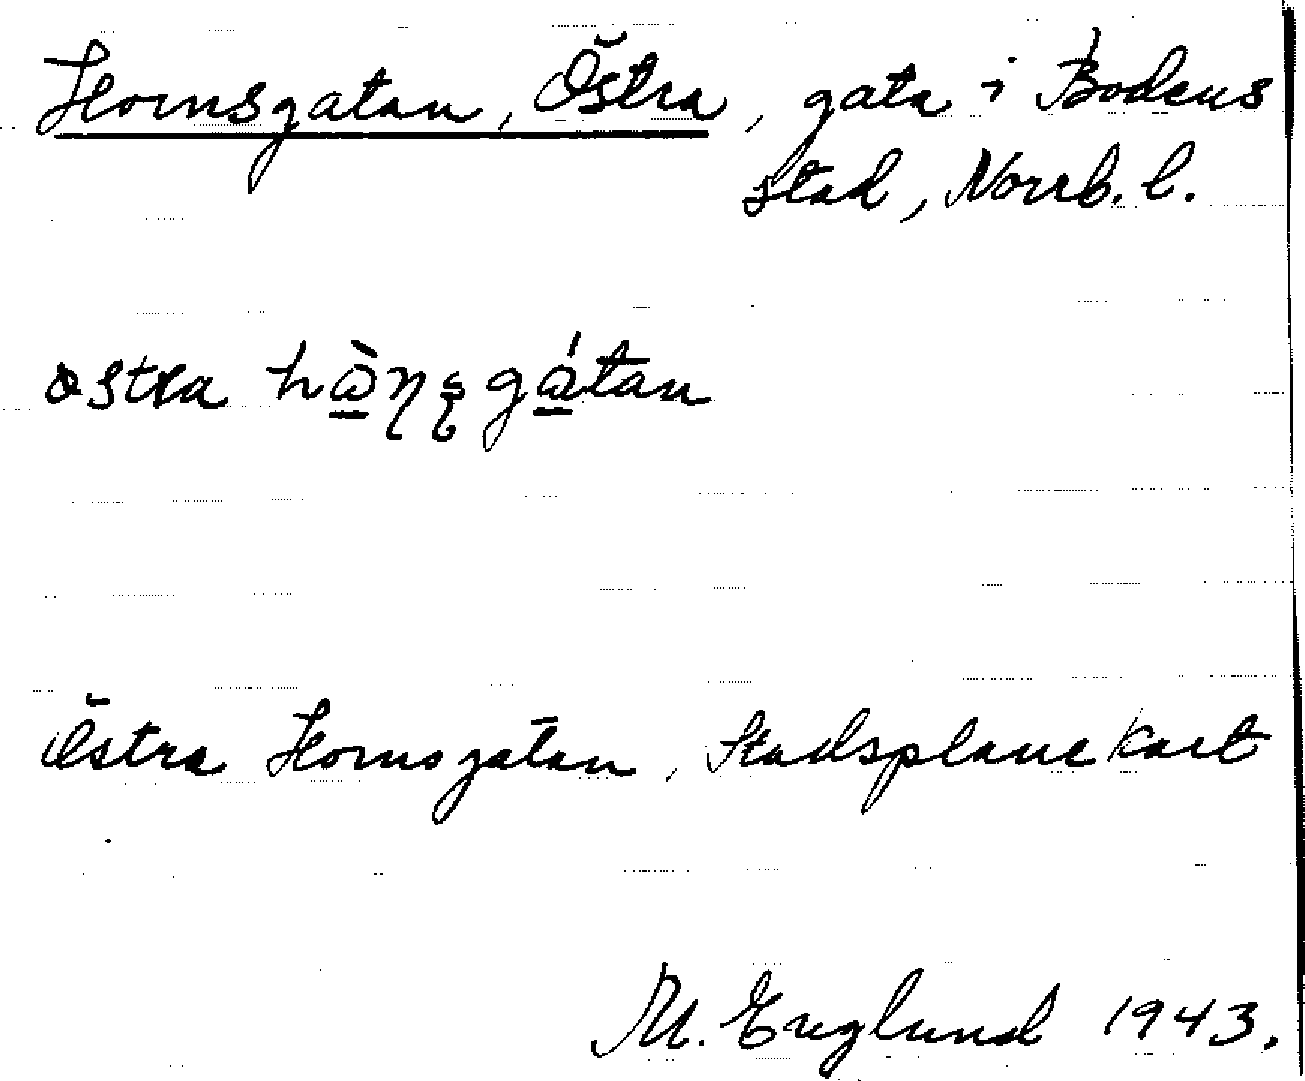 Hornsgatan, Östra, gata i Bodens
stad, Norrb. l.
Östra Hornsgatan, Stadsplanekart
M. Englund 1943.